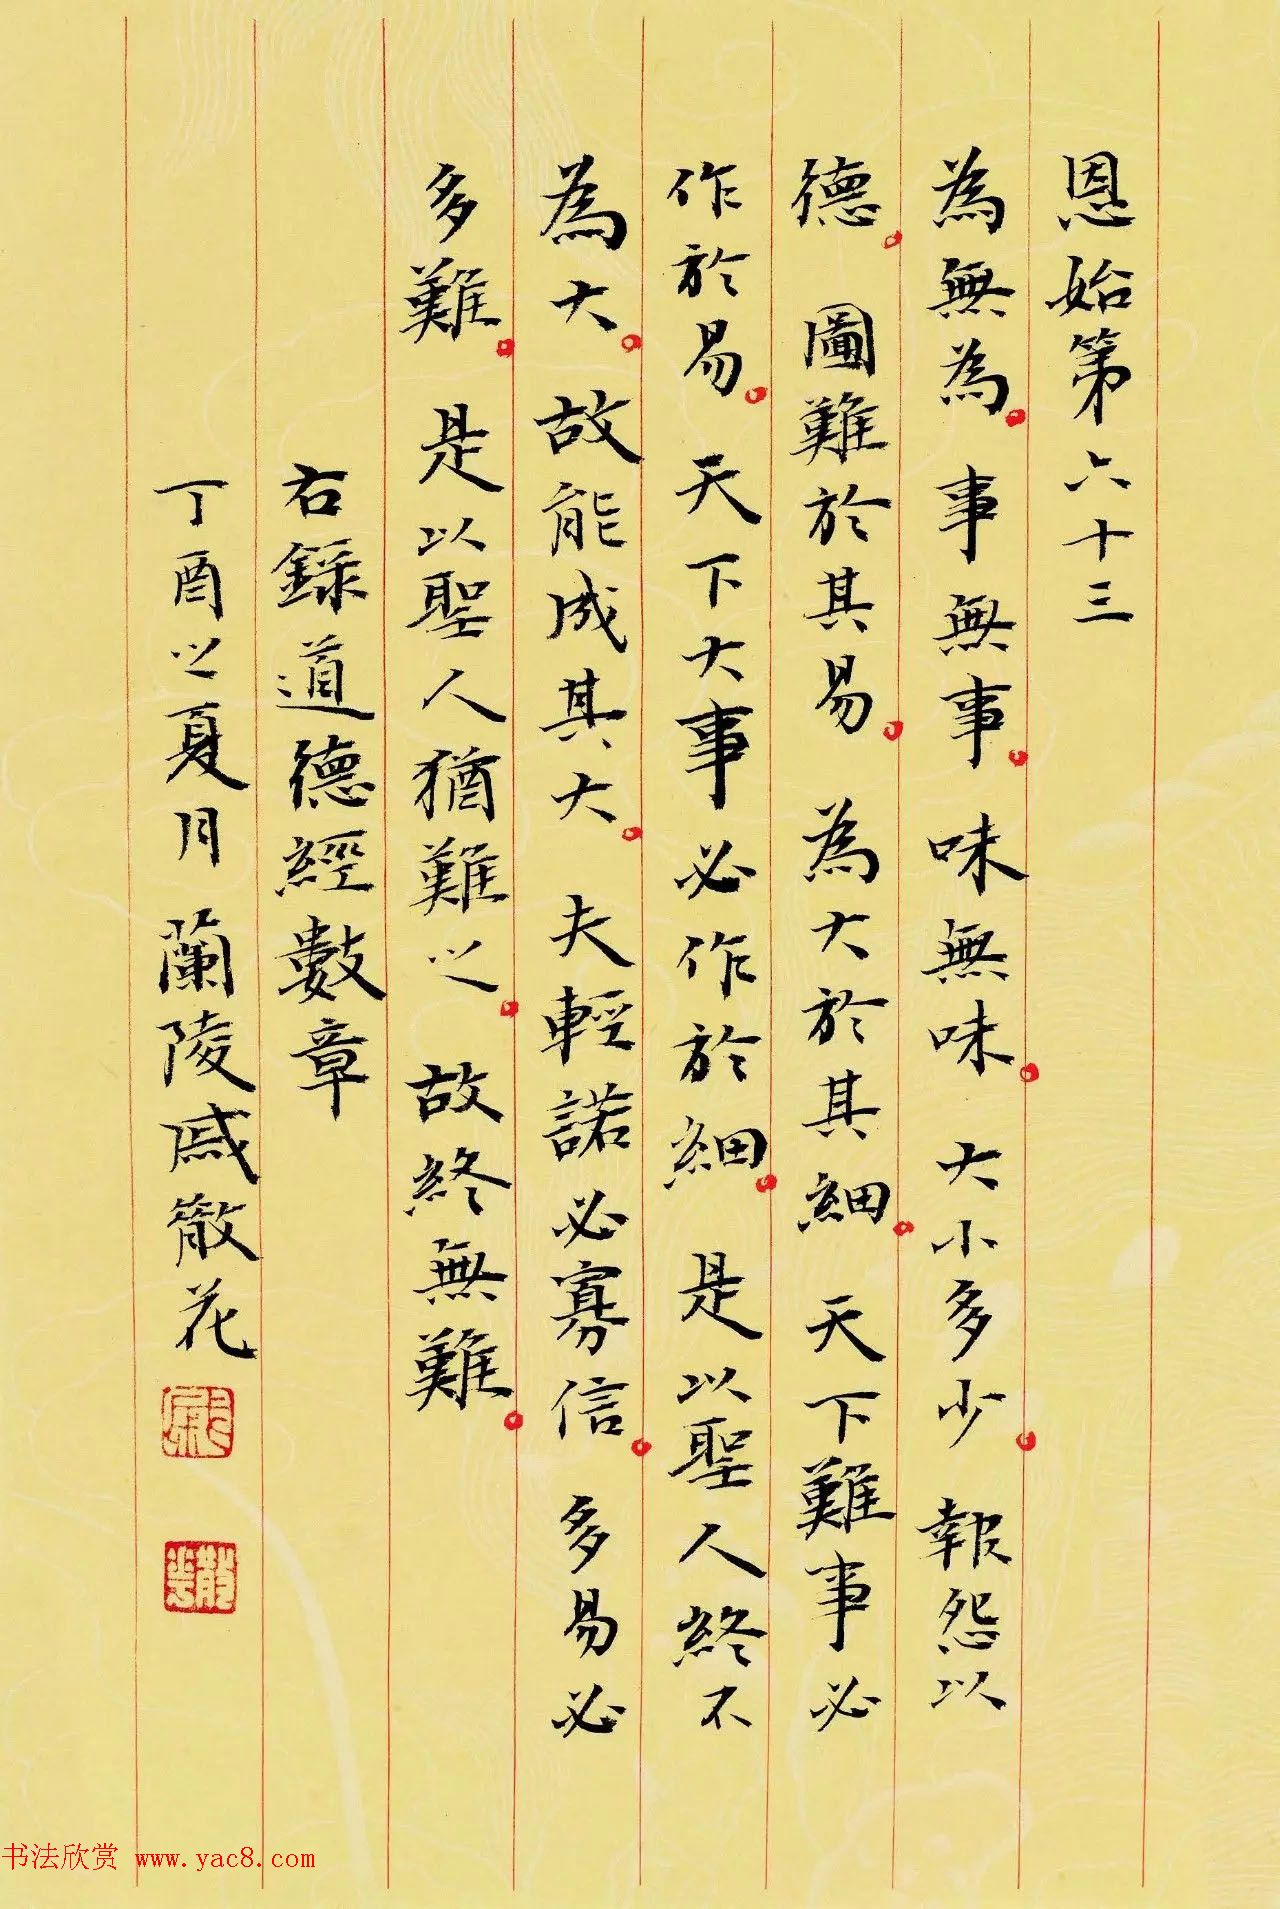 恩始第六十三
為無為。事無事。味無味。大小多少。報怨以
德。圖難於其易。為大於其細。天下難事必
作於易。天下大事必作於細。是以聖人終不
為大。故能成其大。夫輕諾必寡信。多易必
多難。是以聖人猶難之。故終無難。
右錄道德經數章
丁酉之夏月蘭陵戚散花
散花
书法欣赏 www.yac8.com